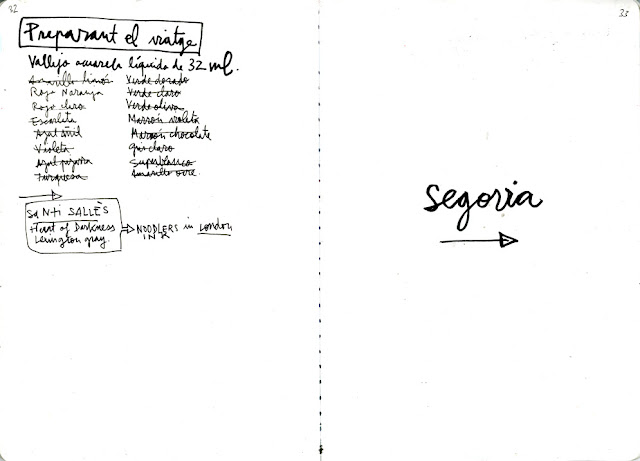 32
Preparant el viatge
Vallejo acuarela líquida de 32 ml.
Amarillo limón
Rojo Naranja
Rojo claro
Escarlata
Azul añil
Violeta
Turquesa
Verde dorado
Verde claro
Verde oliva
Marrón violeta
Marrón chocolate
gris claro
Superblanco
Amarillo ocre.
SaNti SALLÈS
Heart of Darkness
Lexington gray.
NOODLERS in London
INK
33
Segovia